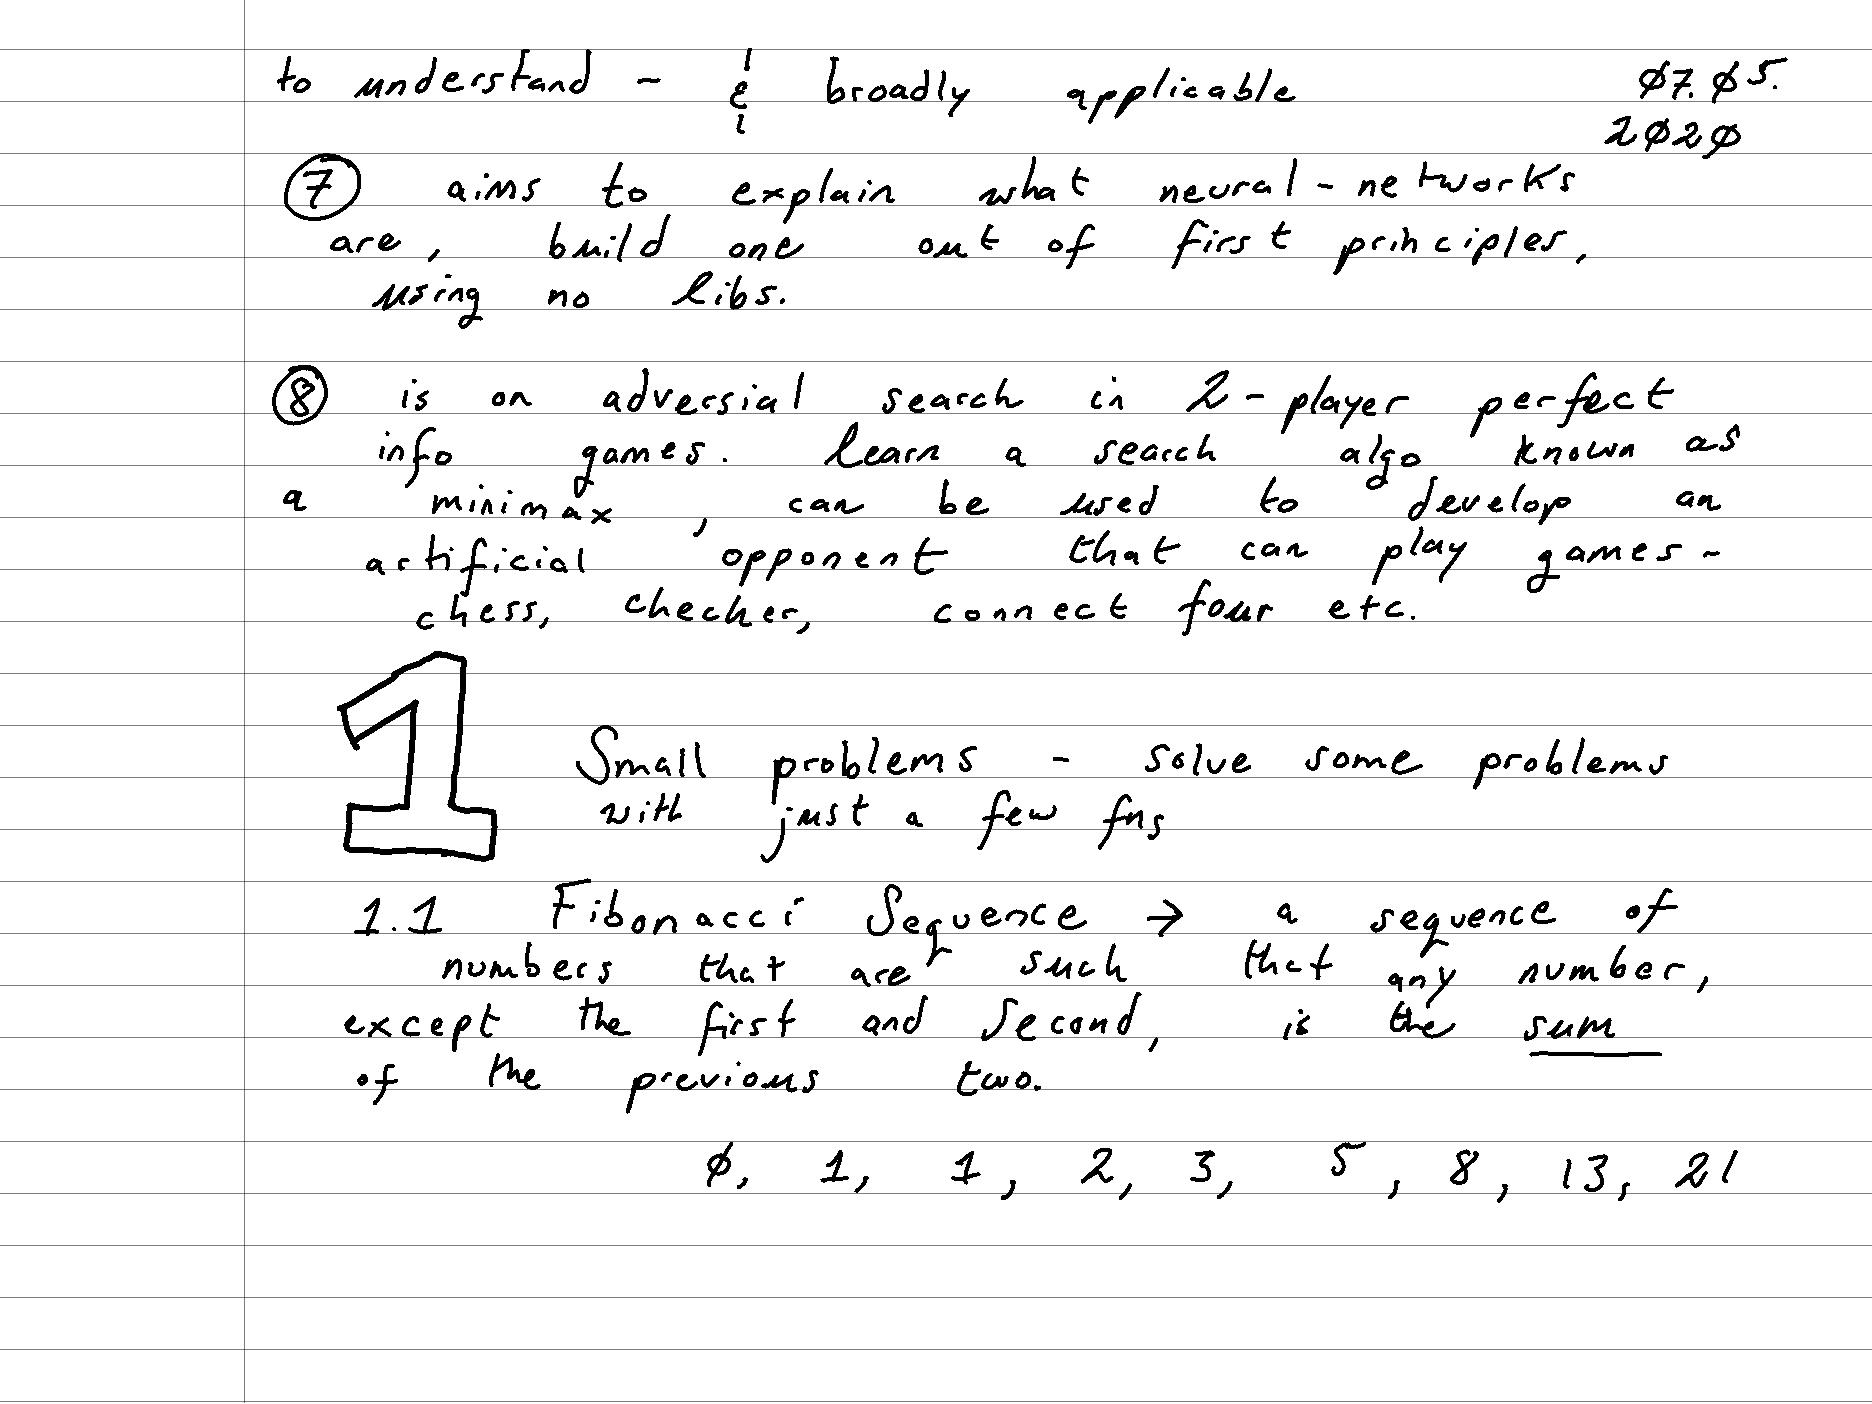 to understand - & broadly applicable
07.05.
2020
7 aims to explain what neural-networks
are, build one out of first principles,
using no libs.
8 is on adversial search in 2-player perfect
info games. learn a search algo known as
a minimax, can be used to develop an
artificial opponent that can play games -
chess, checker, connect four etc.
1 Small problems - solve some problems
with just a few fns
1.1 Fibonacci Sequence → a sequence of
numbers that are such that any number,
except the first and second, is the sum
of the previous two.
0, 1, 1, 2, 3, 5, 8, 13, 21